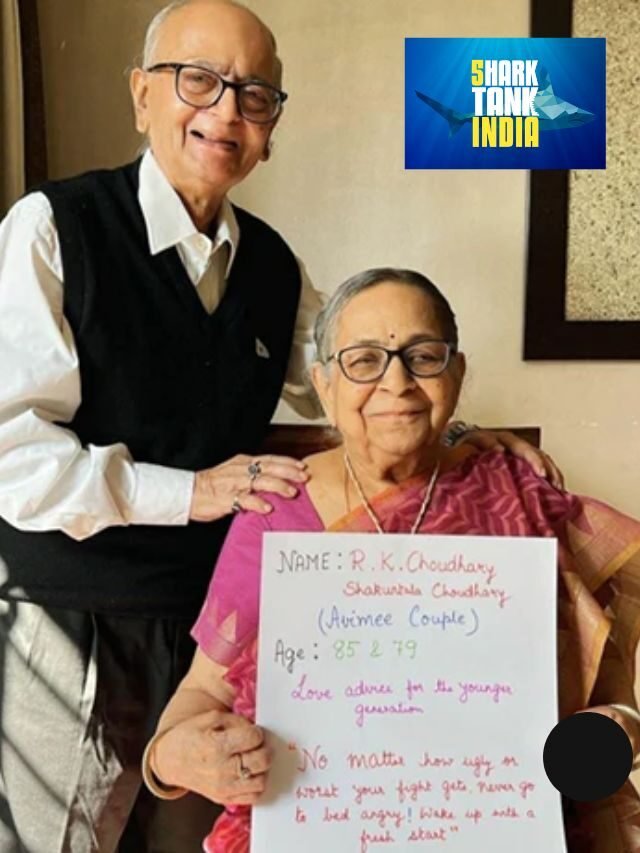 SHARK
TANK
INDIA
NAME: R.K.Choudhary
Shakuntala Choudhary
(Avimee Couple)
Age: 85 & 79
Love advice for the younger
generation
"No matter how ugly or
worst your fight gets, never go
to bed angry! Wake up with a
fresh start"